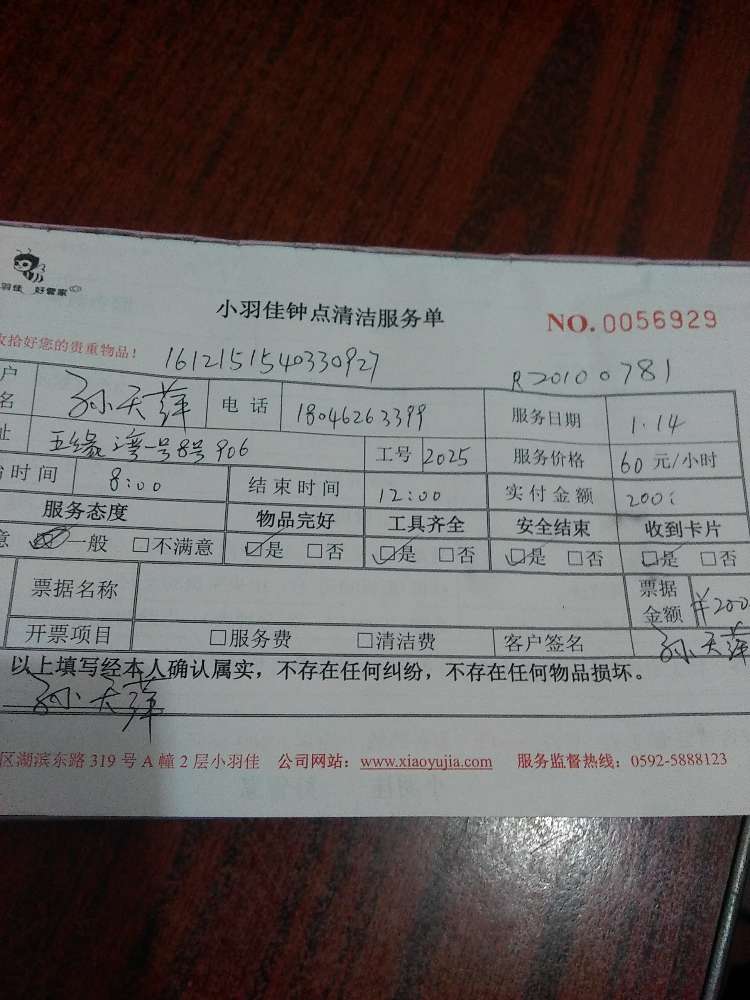 羽佳 好管家
小羽佳钟点清洁服务单
NO.0056929
收拾好您的贵重物品！
1612151540330927
R20100781
户名 孙天萍 电话 18046263399 服务日期 1.14
址 五缘湾一号8号906 工号 2025 服务价格 60 元/小时
时间 8:00 结束时间 12:00 实付金额 200
服务态度 物品完好 工具齐全 安全结束 收到卡片
意 ☑一般 □不满意 ☑是 □否 ☑是 □否 ☑是 □否 ☑是 □否
票据名称 票据金额 ¥200
开票项目 □服务费 □清洁费 客户签名 孙天萍
以上填写经本人确认属实，不存在任何纠纷，不存在任何物品损坏。
孙天萍
区湖滨东路319号A幢2层小羽佳 公司网站：www.xiaoyujia.com 服务监督热线：0592-5888123